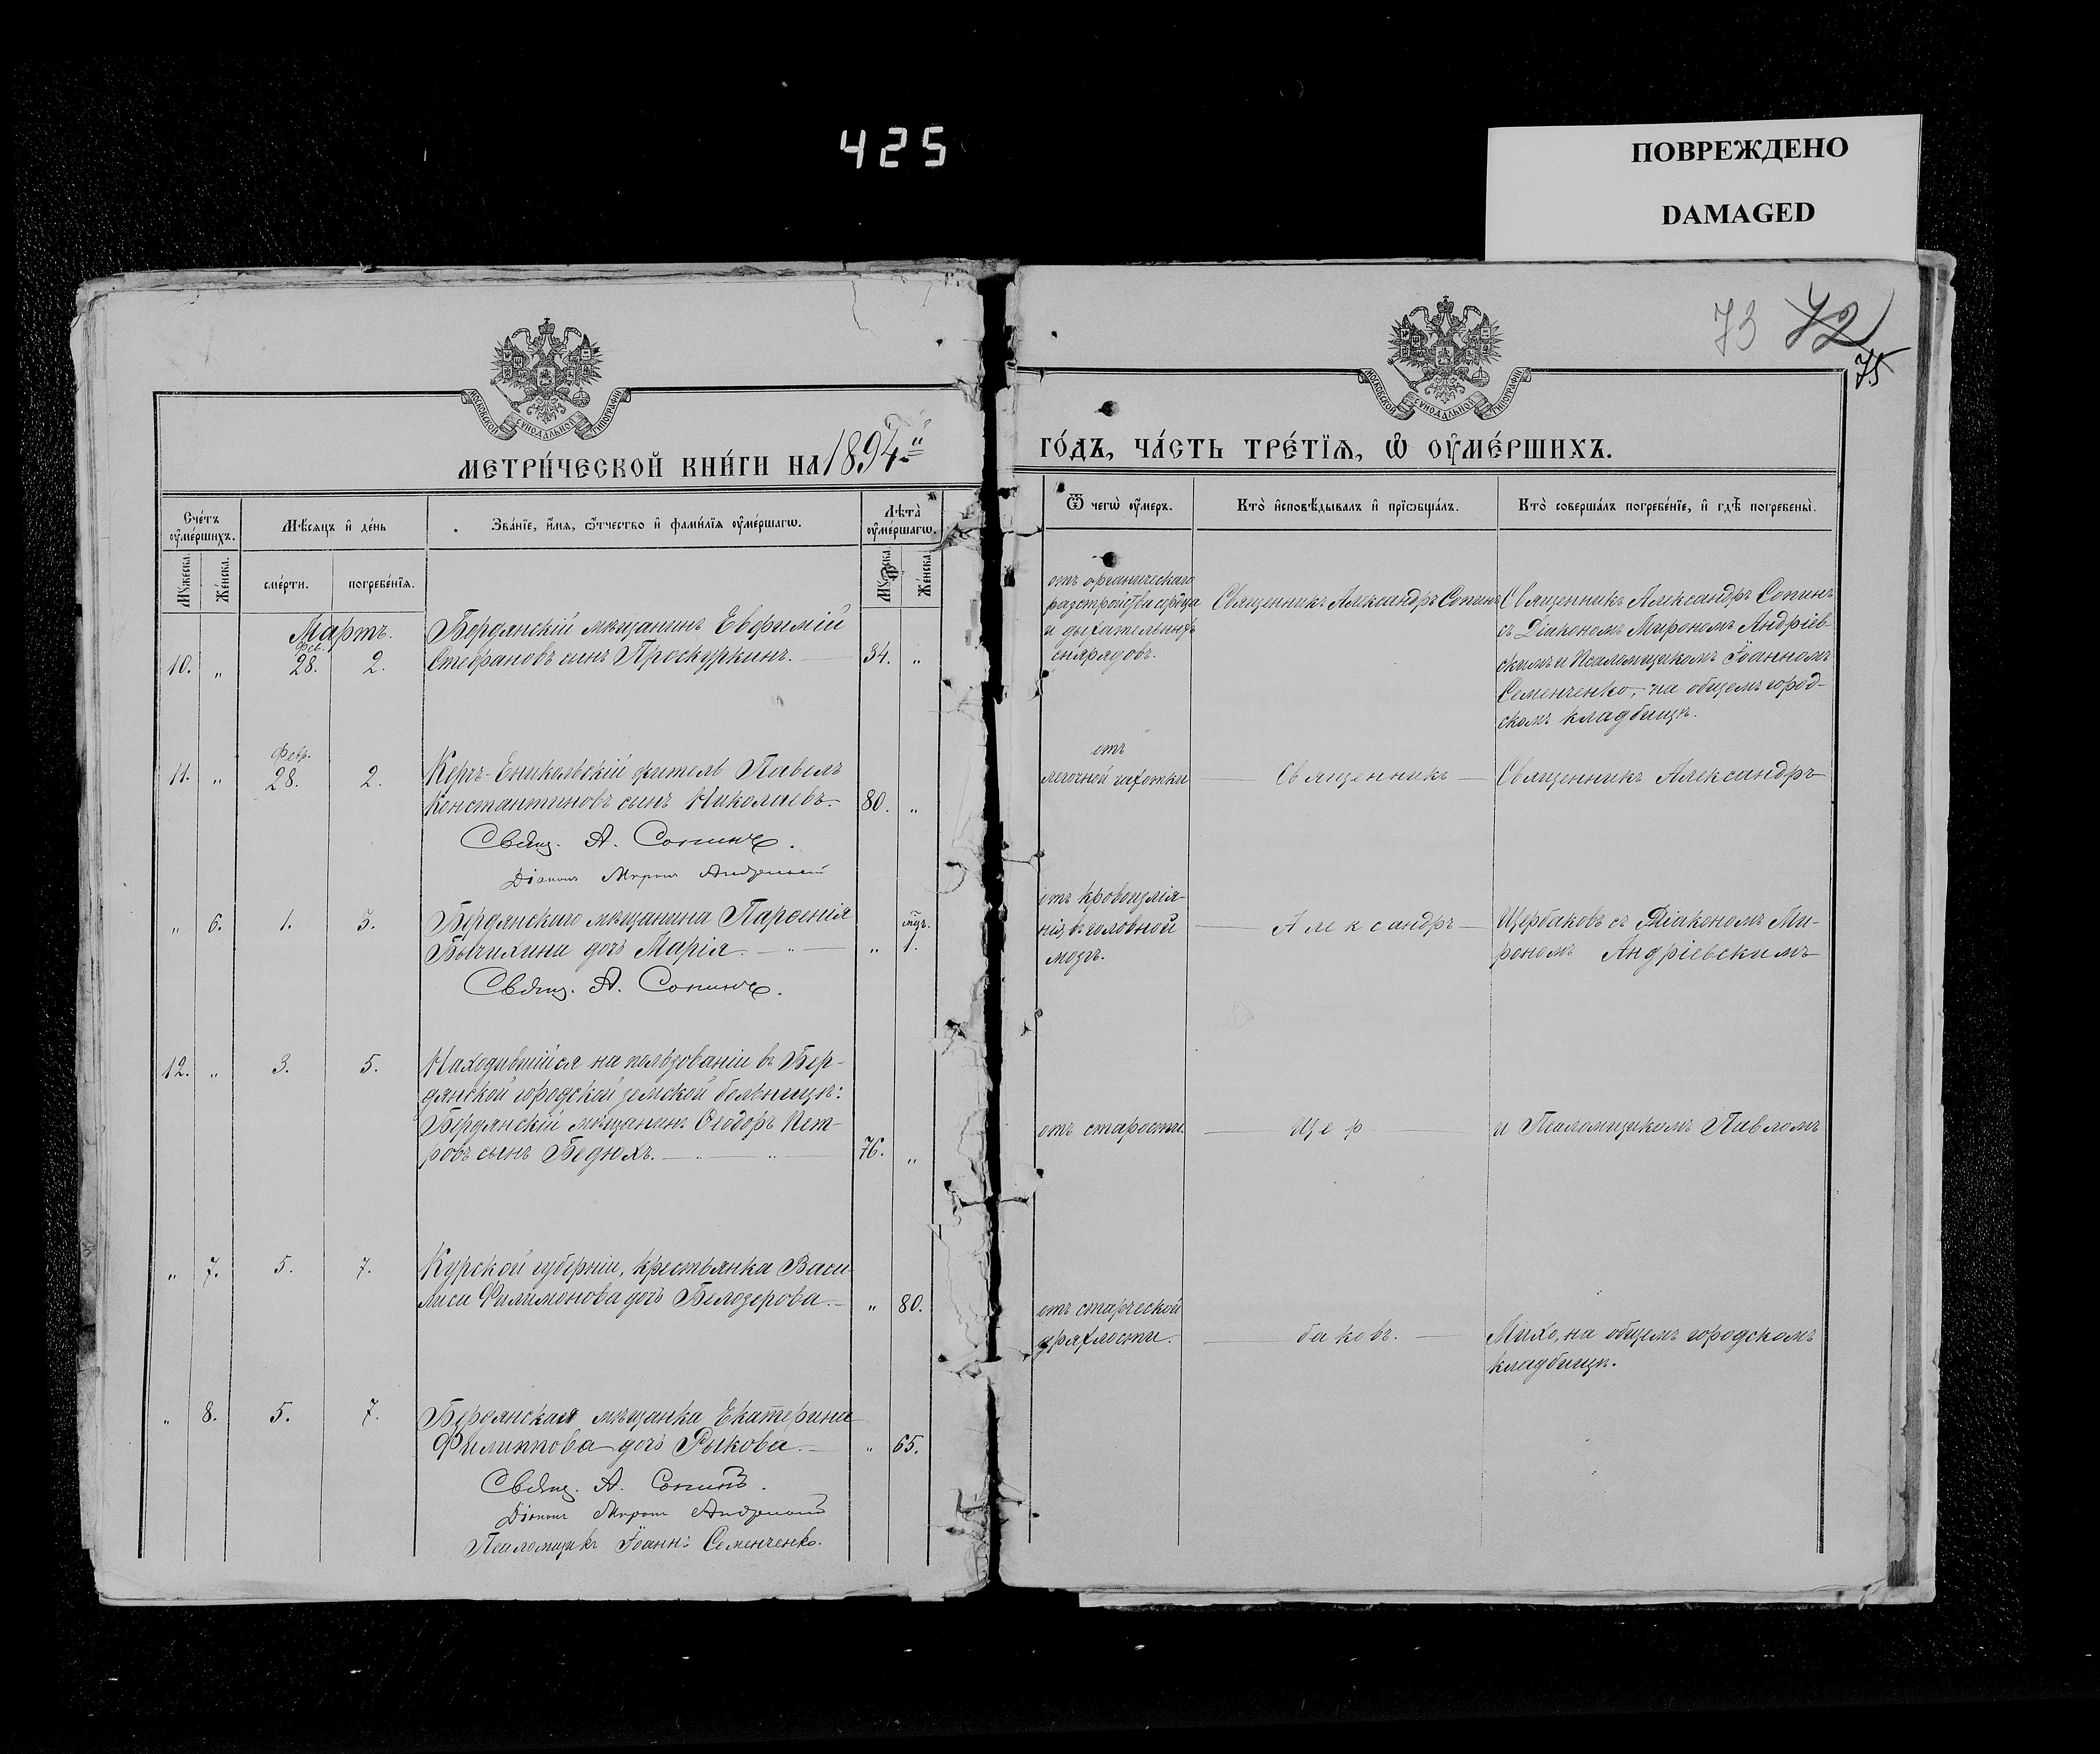 425
ПОВРЕЖДЕНО
DAMAGED
73 72
75
МОСКОВСКОЙ СѴНОДАЛЬНОЙ ТИПОГРАФІИ
МОСКОВСКОЙ СѴНОДАЛЬНОЙ ТИПОГРАФІИ
МЕТРИ́ЧЕСКОЙ КНИ́ГИ НА 1894й
ГО́ДЪ, ЧА́СТЬ ТРЕ́ТІѦ, Ѡ ОУМЕ́РШИХЪ.
Сче́тъ оумершихъ.
Мѣ́сяцъ и де́нь
Зва́ніе, и́мя, ѻ́тчество и фами́лія оуме́ршагѡ.
Лѣта̀ оуме́ршагѡ.
Мꙋжеска.
Же́нска.
сме́рти.
погребе́нія.
Мꙋжеска.
Же́нска.
Ѿ чегѡ̀ оу́меръ.
Кто̀ исповѣ́дывалъ и пріѡбща́лъ.
Кто̀ соверша́лъ погребе́ніе, и гдѣ̀ погребены̀.
Мартъ.
10. „ Фев. 28. 2.
Бердянскій мѣщанинъ Евфимій
Стефановъ сынъ Проскуркинъ. — 34. „
отъ органическаго
разстройства сердца
и дыхательныхъ
снарядовъ.
Священникъ Александръ Сопинъ
Священникъ Александръ Сопинъ
съ Діакономъ Мирономъ Андріев-
скимъ и Псаломщикомъ Іоанномъ
Семенченко, на общемъ город-
скомъ кладбищѣ.
11. „ Февр. 28. 2.
Керчь-Еникольскій житель Павелъ
Константиновъ сынъ Николаевъ. 80. „
Свящ. А. Сопинъ.
Діаконъ Миронъ Андріевскій
отъ
легочной чахотки
— Священникъ —
Священникъ Александръ
„ 6. 1. 3.
Бердянскаго мѣщанина Парѳенія
Бычихина дочь Марія. — „ — „ мѣц. 1.
Свящ. А. Сопинъ.
отъ кровоизлія-
нія въ головной
мозгъ.
— Александръ —
Щербаковъ съ Діакономъ Ми-
рономъ Андріевскимъ
12. „ 3. 5.
Находившійся на пользованіи въ Бер-
дянской городской земской больницѣ:
Бердянскій мѣщанинъ Ѳеодоръ Пет-
ровъ сынъ Бедюхъ. — „ — „ — 76. „
отъ старости.
— Щер —
и Псаломщикомъ Павломъ
„ 7. 5. 7.
Курской губерніи, крестьянка Васи-
лиса Филимонова дочь Белозерова. — „ 80.
отъ старческой
дряхлости.
— баковъ. —
Михо, на общемъ городскомъ
кладбищѣ.
„ 8. 5. 7.
Бердянская мѣщанка Екатерина
Филиппова дочь Рыкова. — „ 65.
Свящ. А. Сопинъ.
Діаконъ Миронъ Андріевскій
Псаломщикъ Іоаннъ Семенченко.